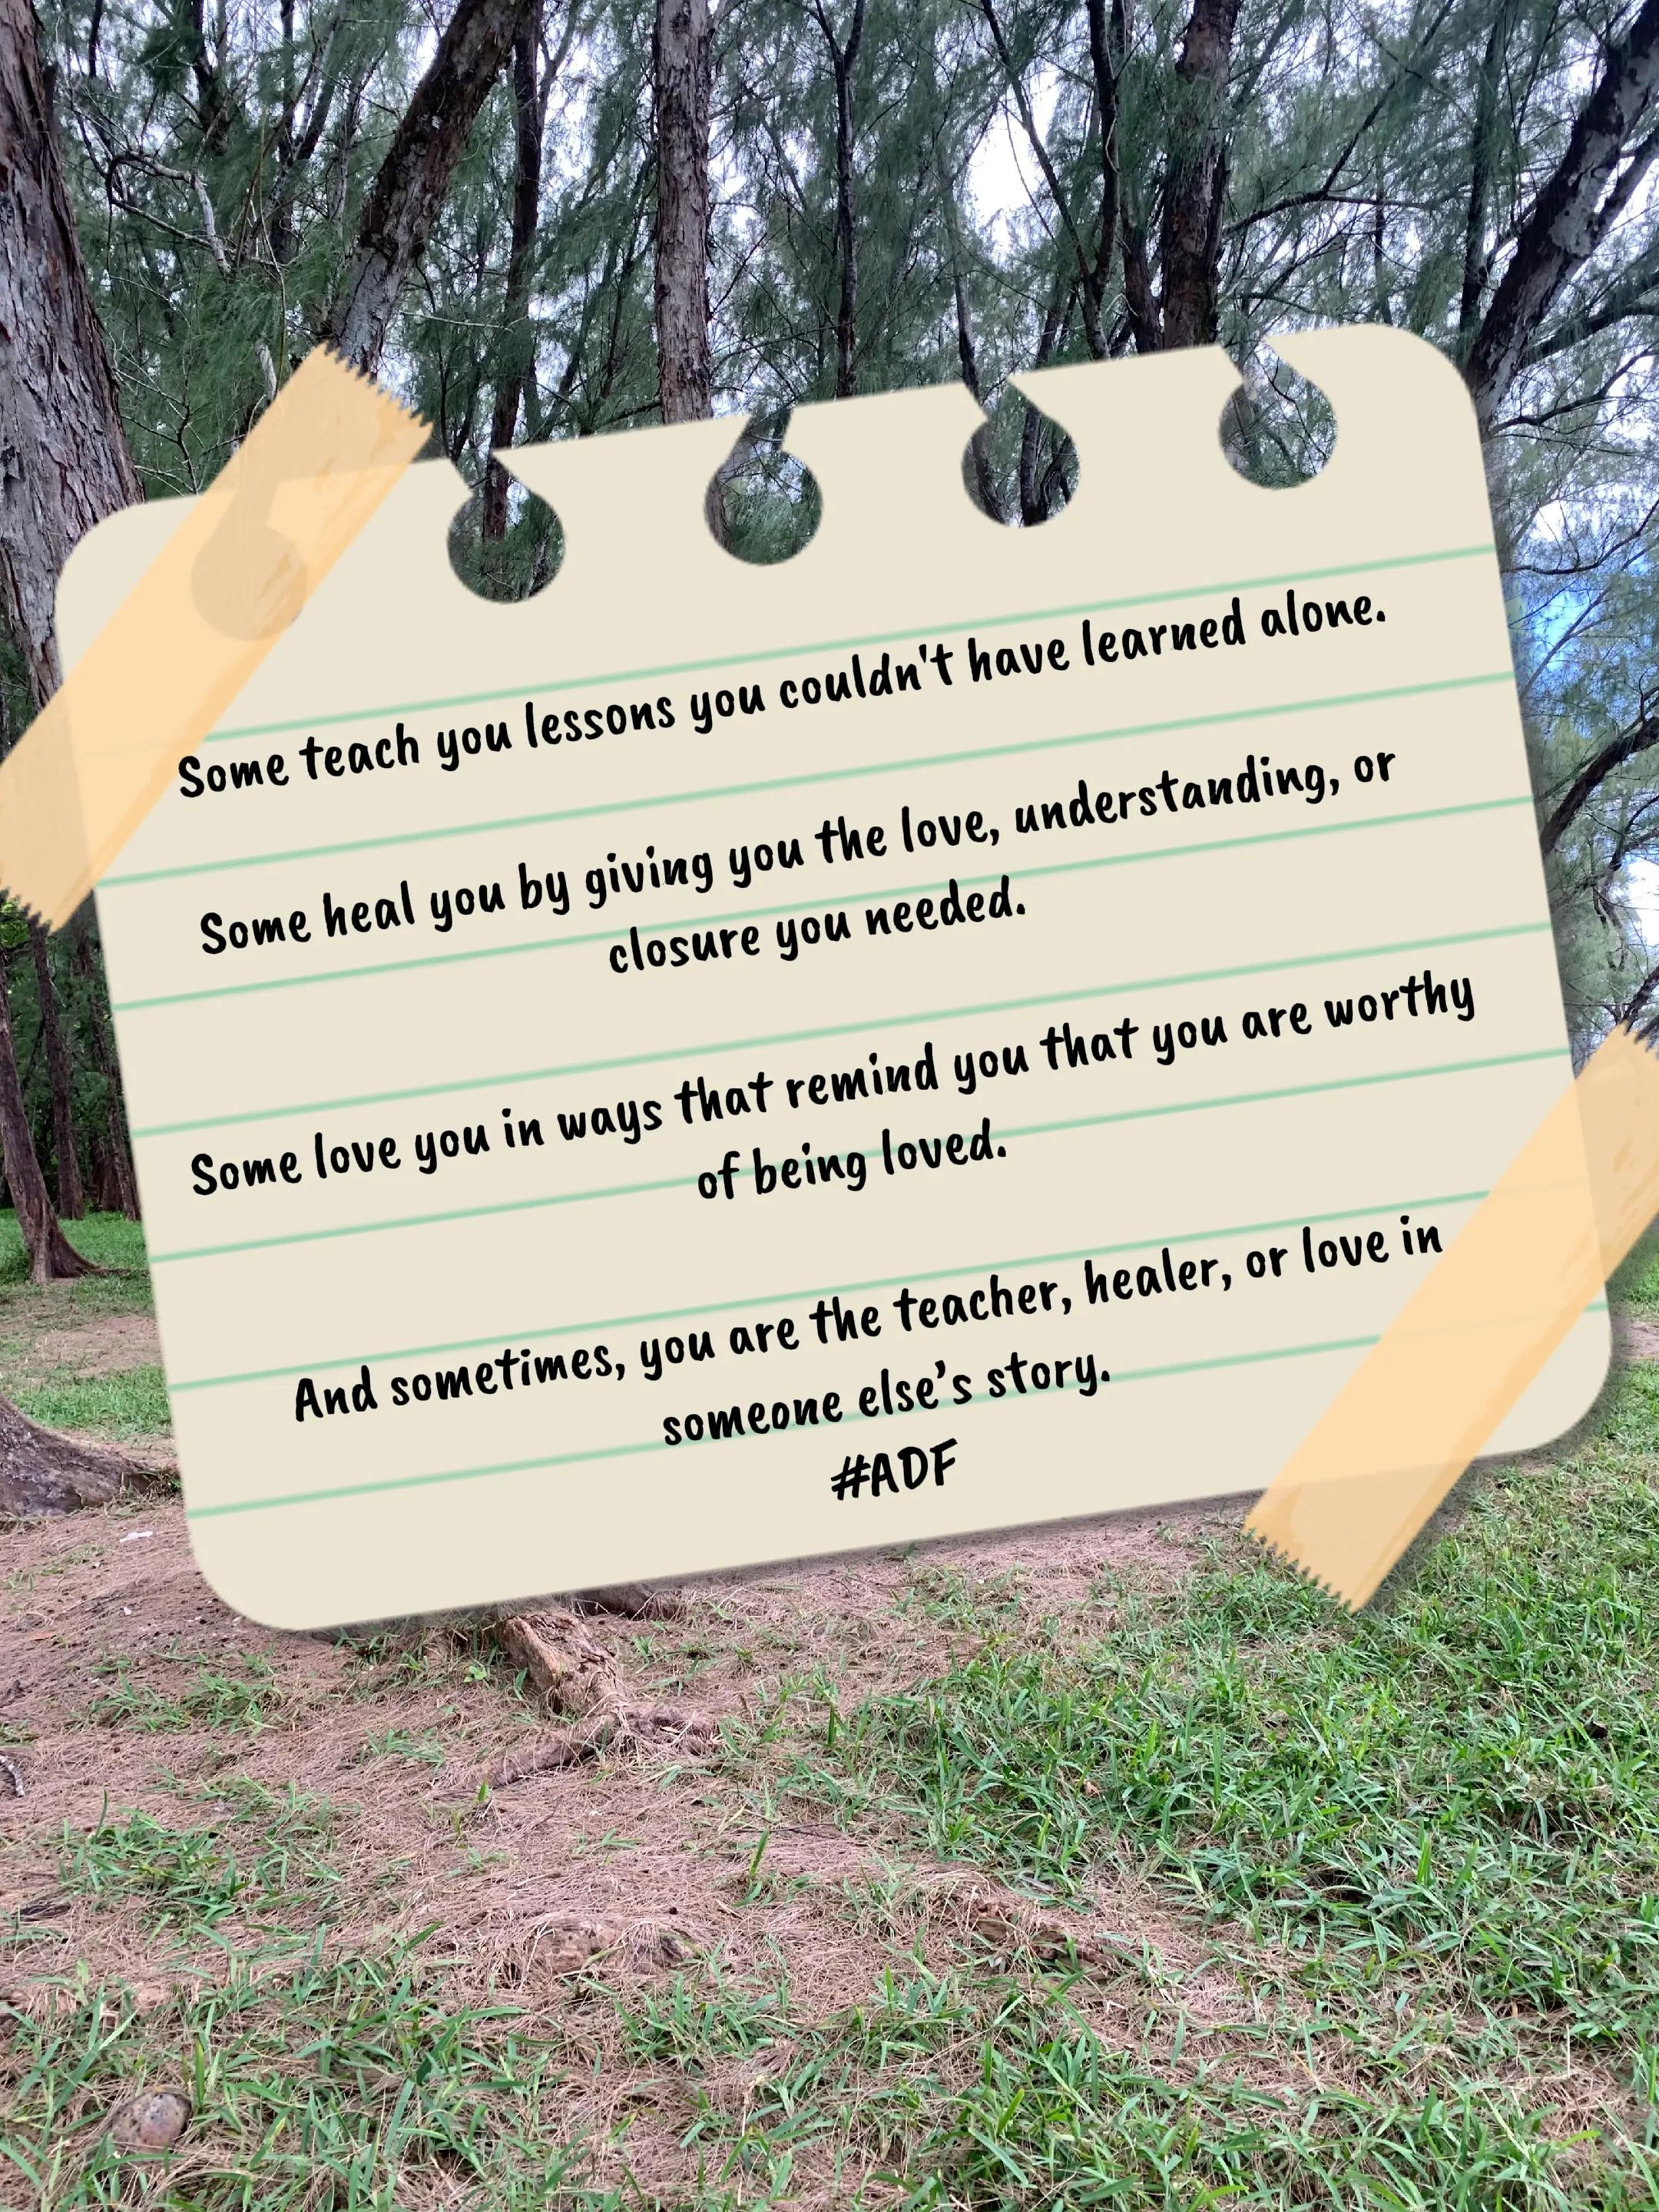 Some teach you lessons you couldn't have learned alone.
Some heal you by giving you the love, understanding, or
closure you needed.
Some love you in ways that remind you that you are worthy
of being loved.
And sometimes, you are the teacher, healer, or love in
someone else’s story.
#ADF